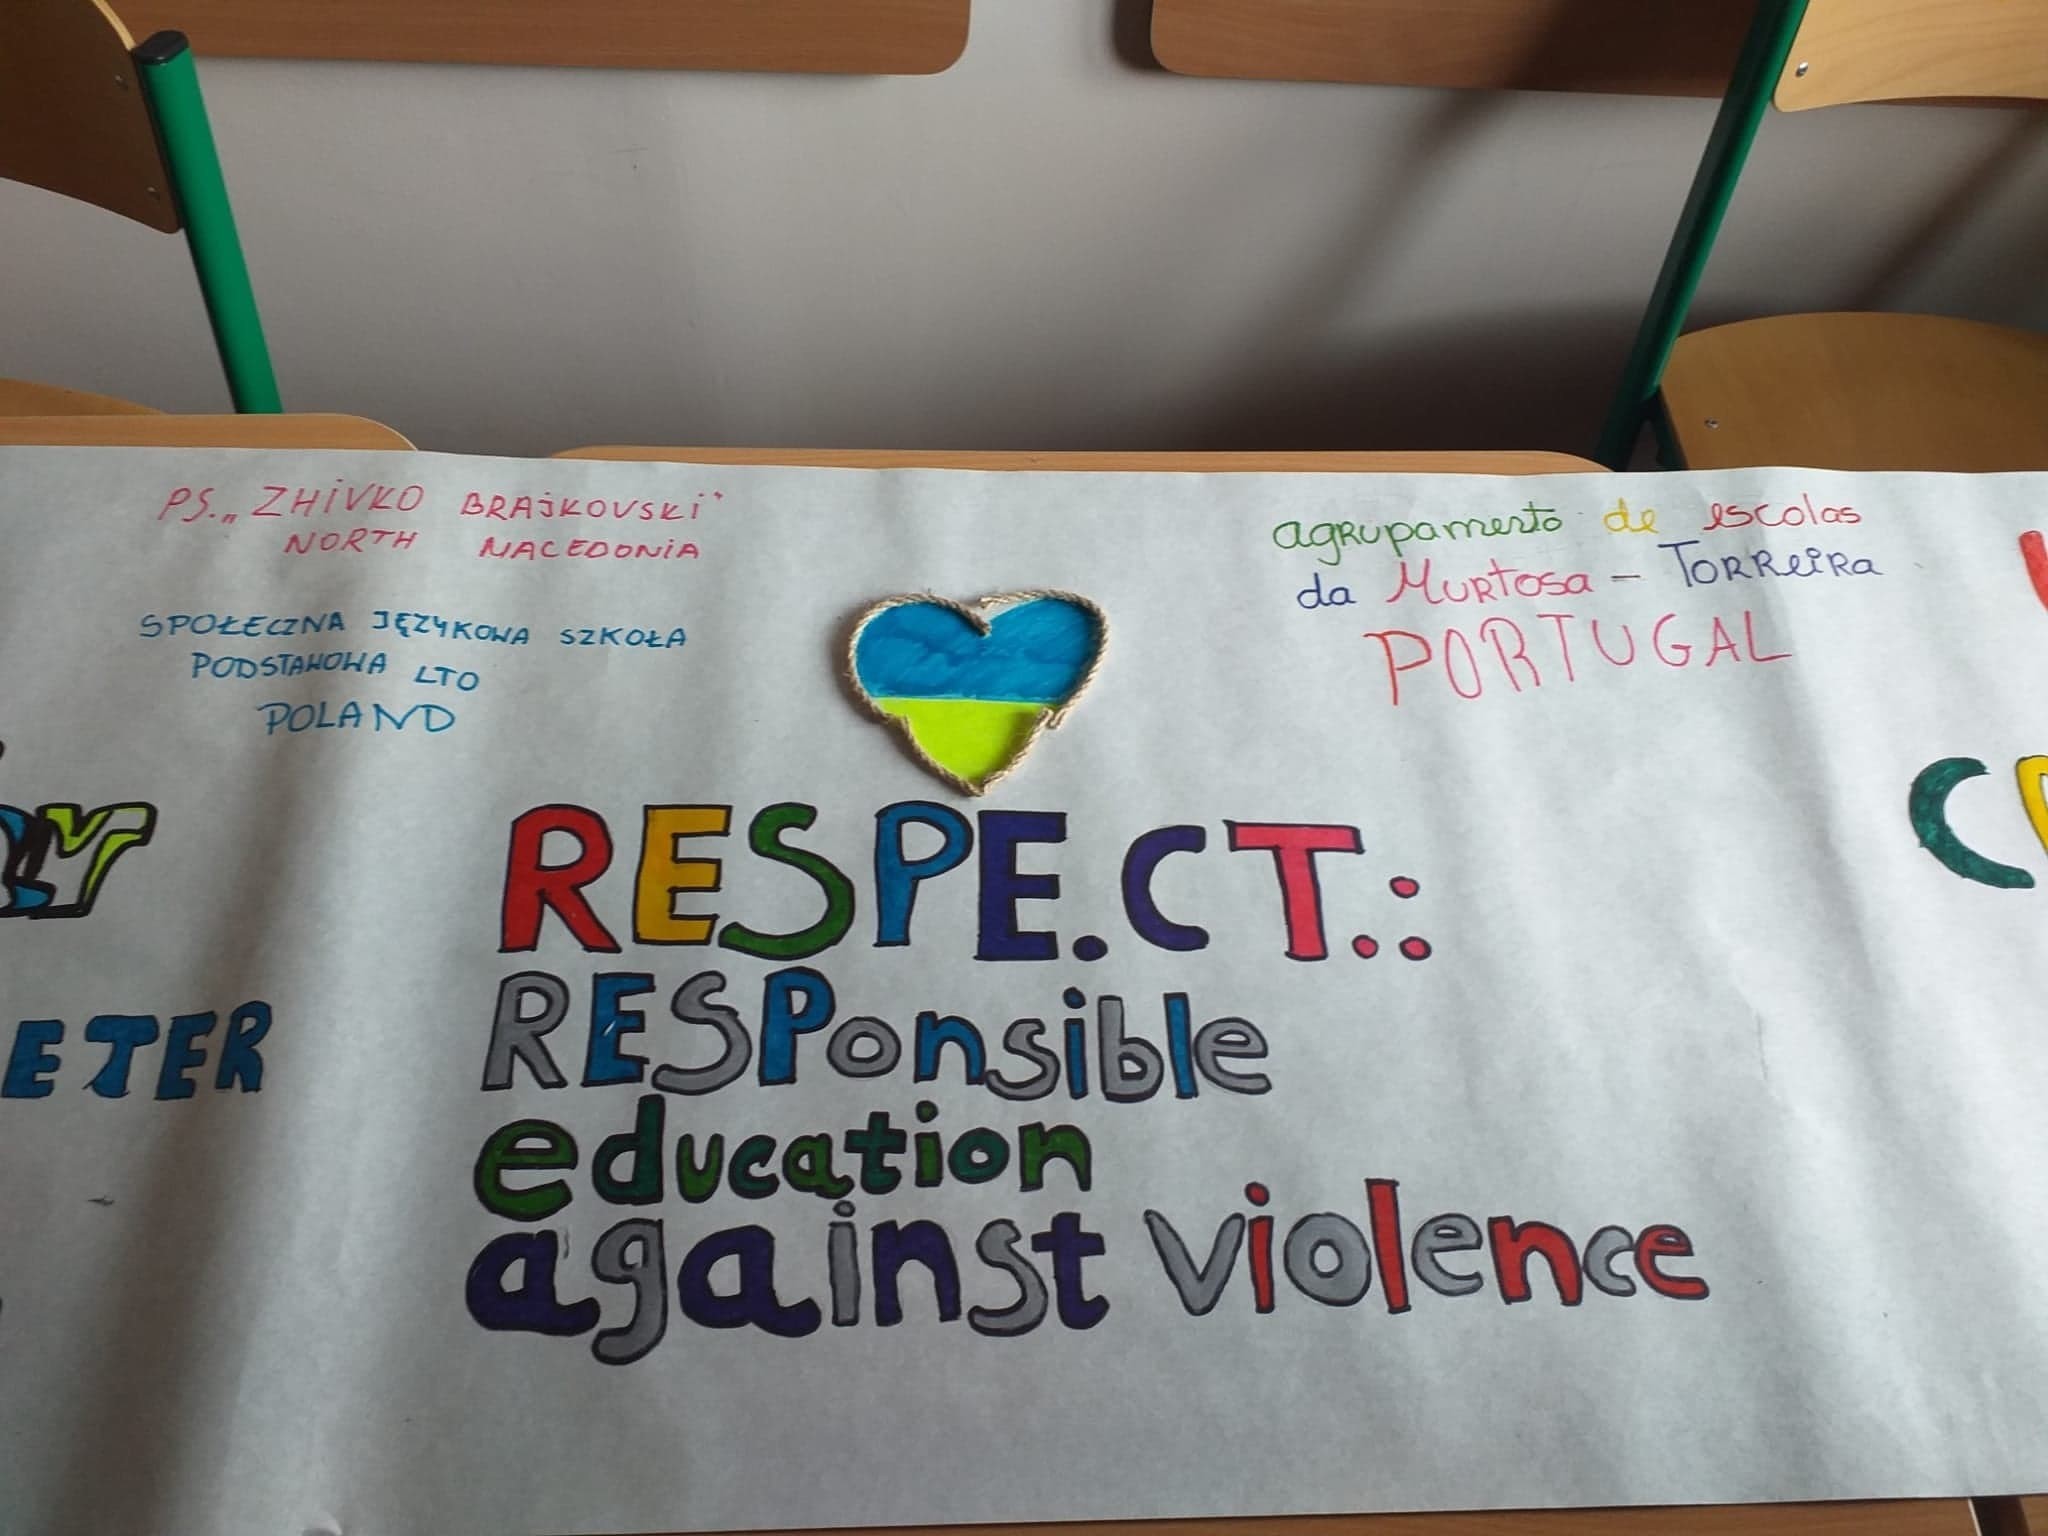 PS. „ZHIVKO BRAJKOVSKI"
NORTH MACEDONIA
SPOŁECZNA JĘZYKOWA SZKOŁA
PODSTAWOWA LTO
POLAND
agrupamento de escolas
da Murtosa - Torreira
PORTUGAL
RESPE.CT.:
RESPonsible
education
against violence
ETER